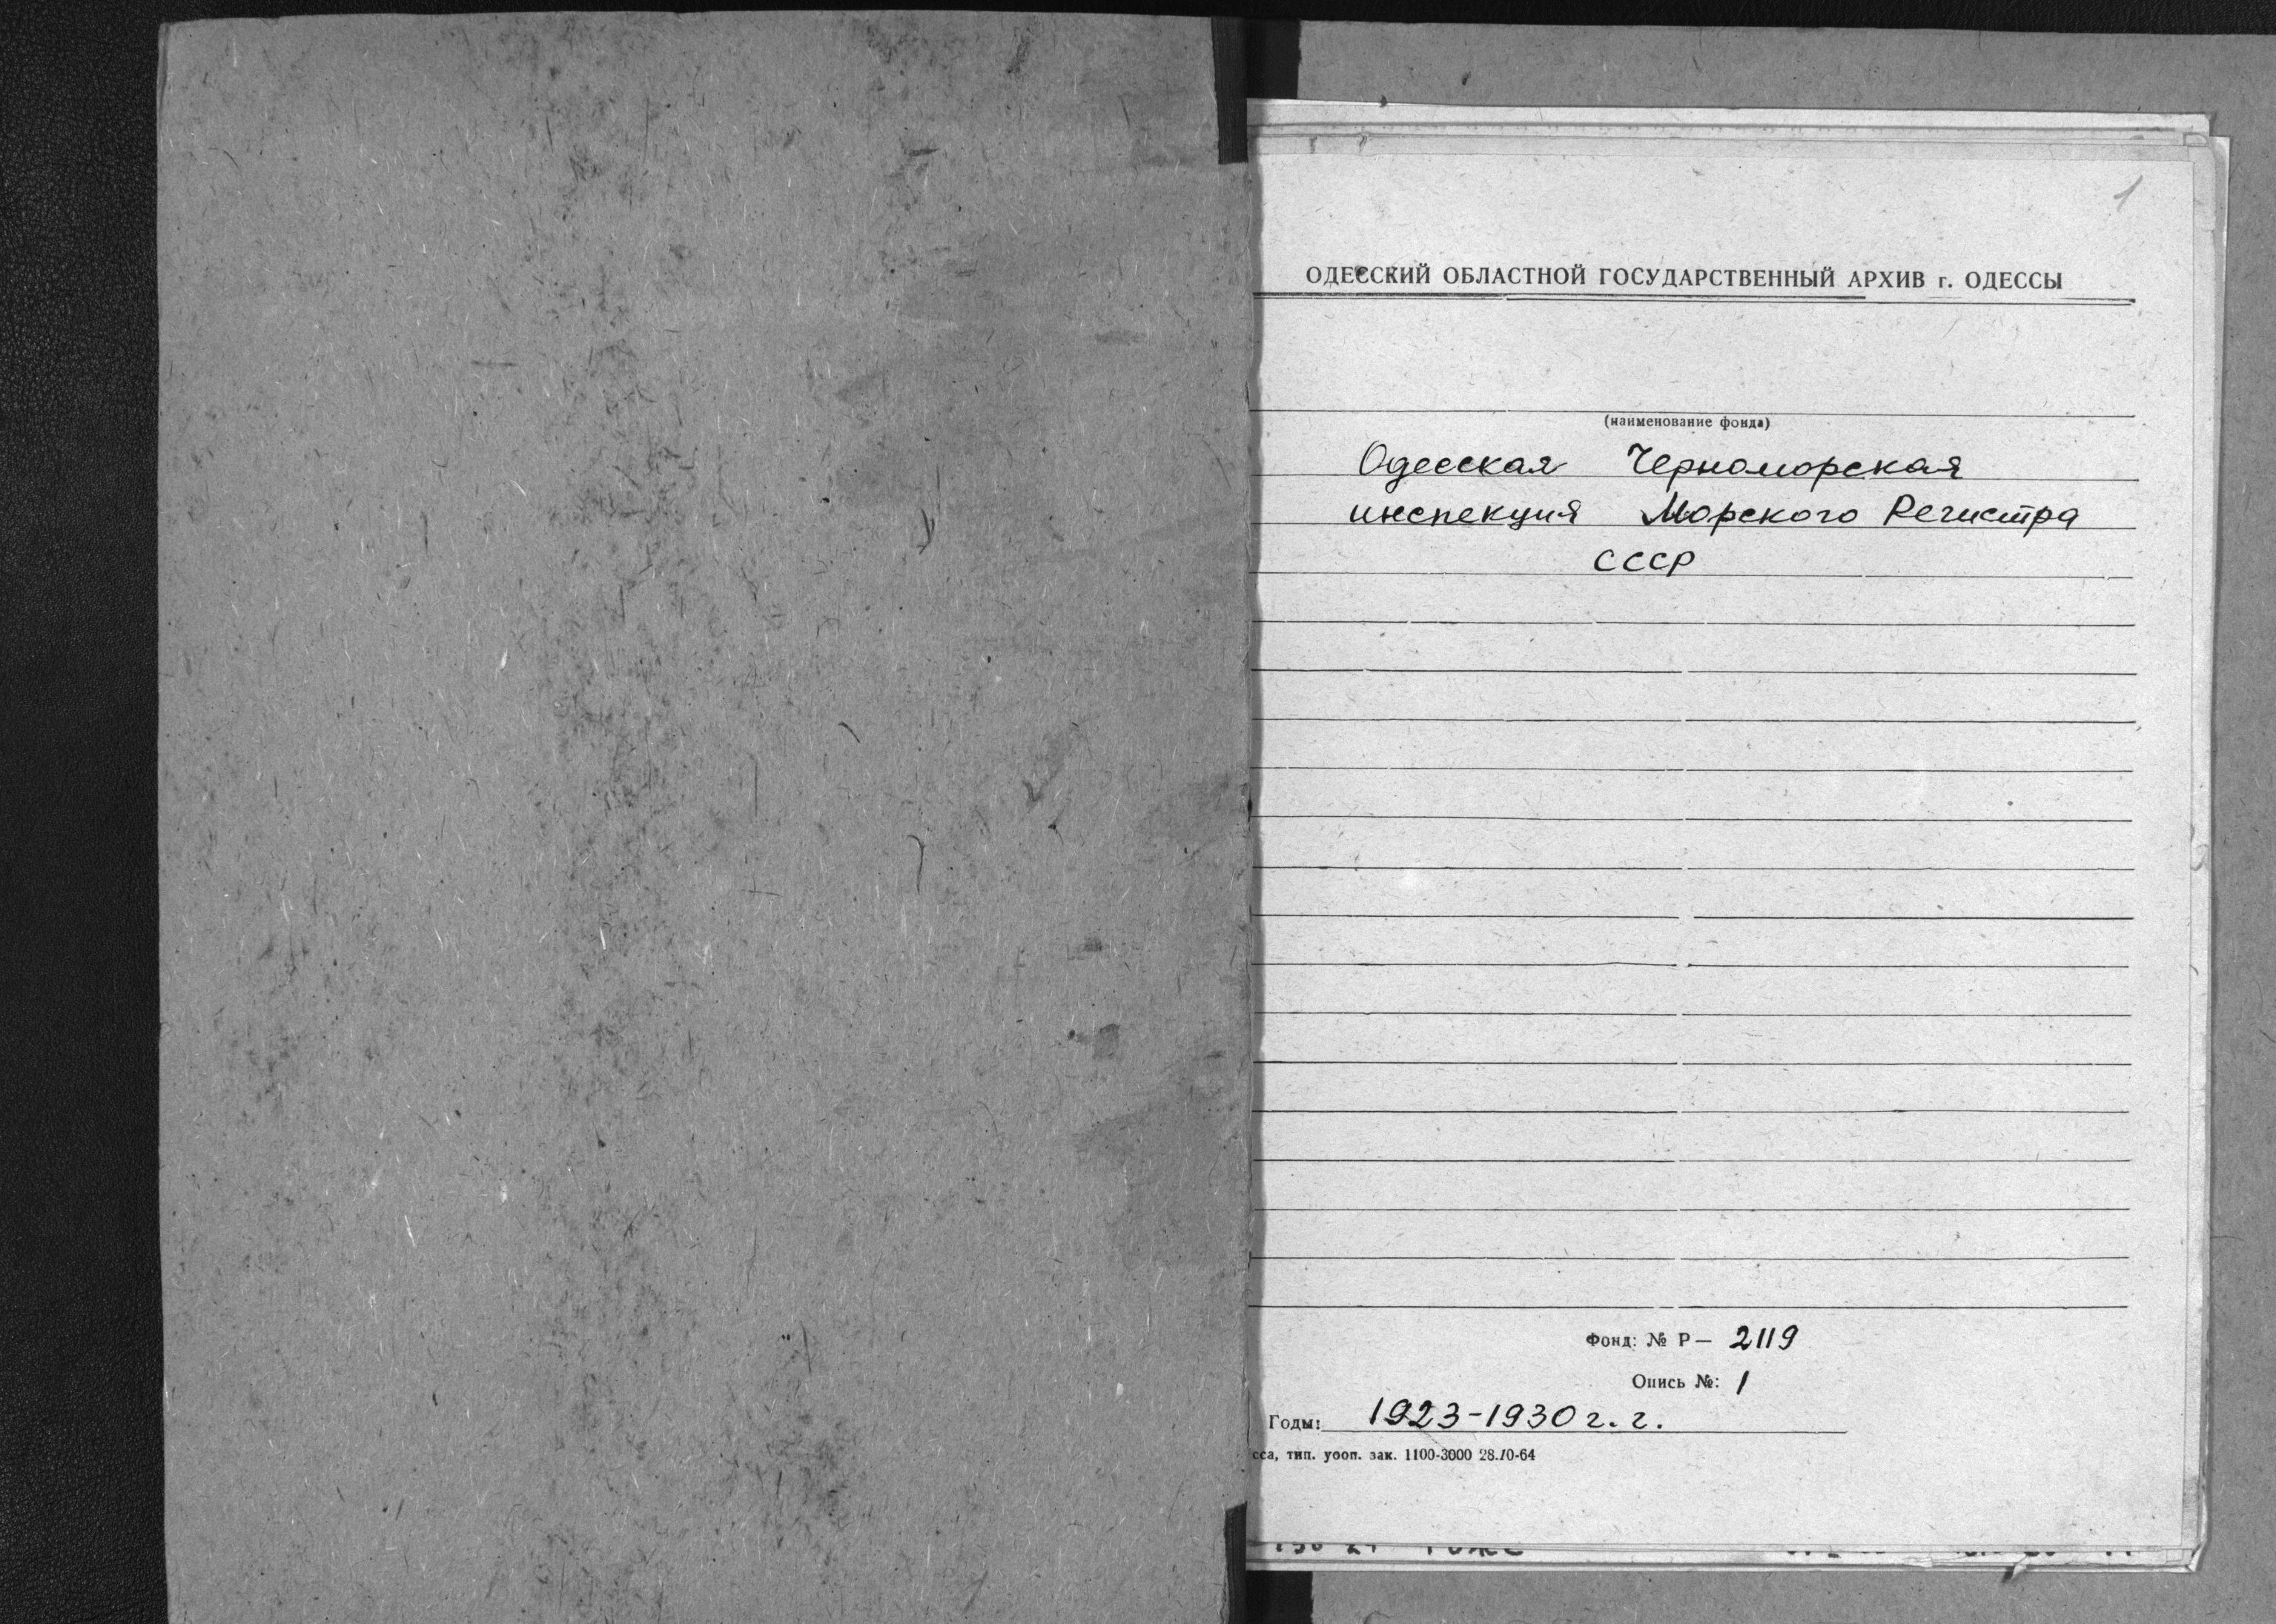 1
ОДЕССКИЙ ОБЛАСТНОЙ ГОСУДАРСТВЕННЫЙ АРХИВ г. ОДЕССЫ
(наименование фонда)
Одесская Черноморская
инспекция Морского Регистра
СССР
Фонд: № Р— 2119
Опись №: 1
Годы: 1923-1930 г. г.
сса, тип. уооп. зак. 1100-3000 28.10-64